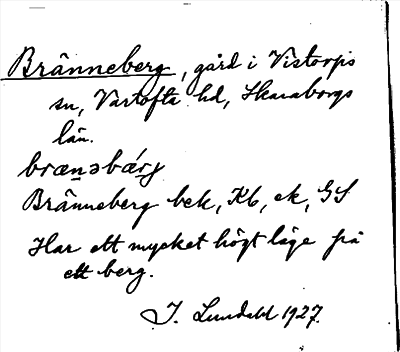 Bränneberg, gård i Vistorps
sn, Vartofta hd, Skaraborgs
län.
brænəbárj
Bränneberg bek, Kb, ek, GS
Har ett mycket högt läge på
ett berg.
J. Lundahl 1927.